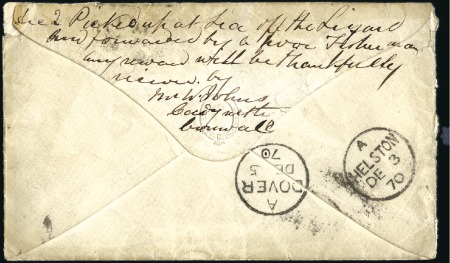 Dec 2 Picked up at Sea off the Lizard
and forwarded by a poor Fisherman
any reward will be thankfully
receive. by
Mr W Johns
Cadgwith
Cornwall
A
DOVER
DE 5
70
A
HELSTON
DE 3
70